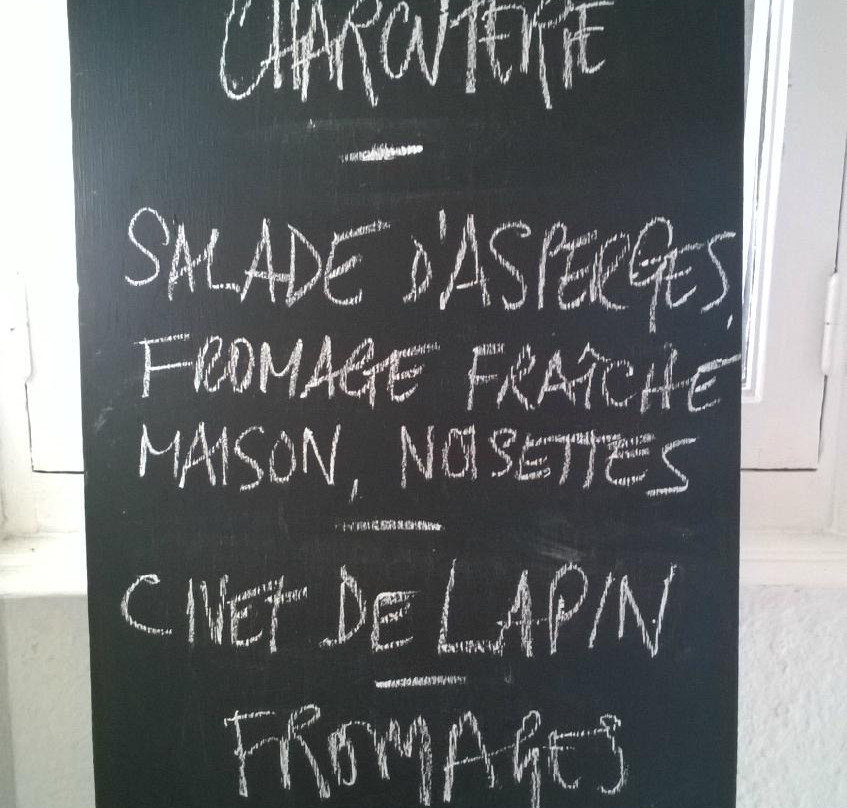 CHARCUTERIE
SALADE D'ASPERGES,
FROMAGE FRAÎCHE
MAISON, NOISETTES
CIVET DE LAPIN
FROMAGES